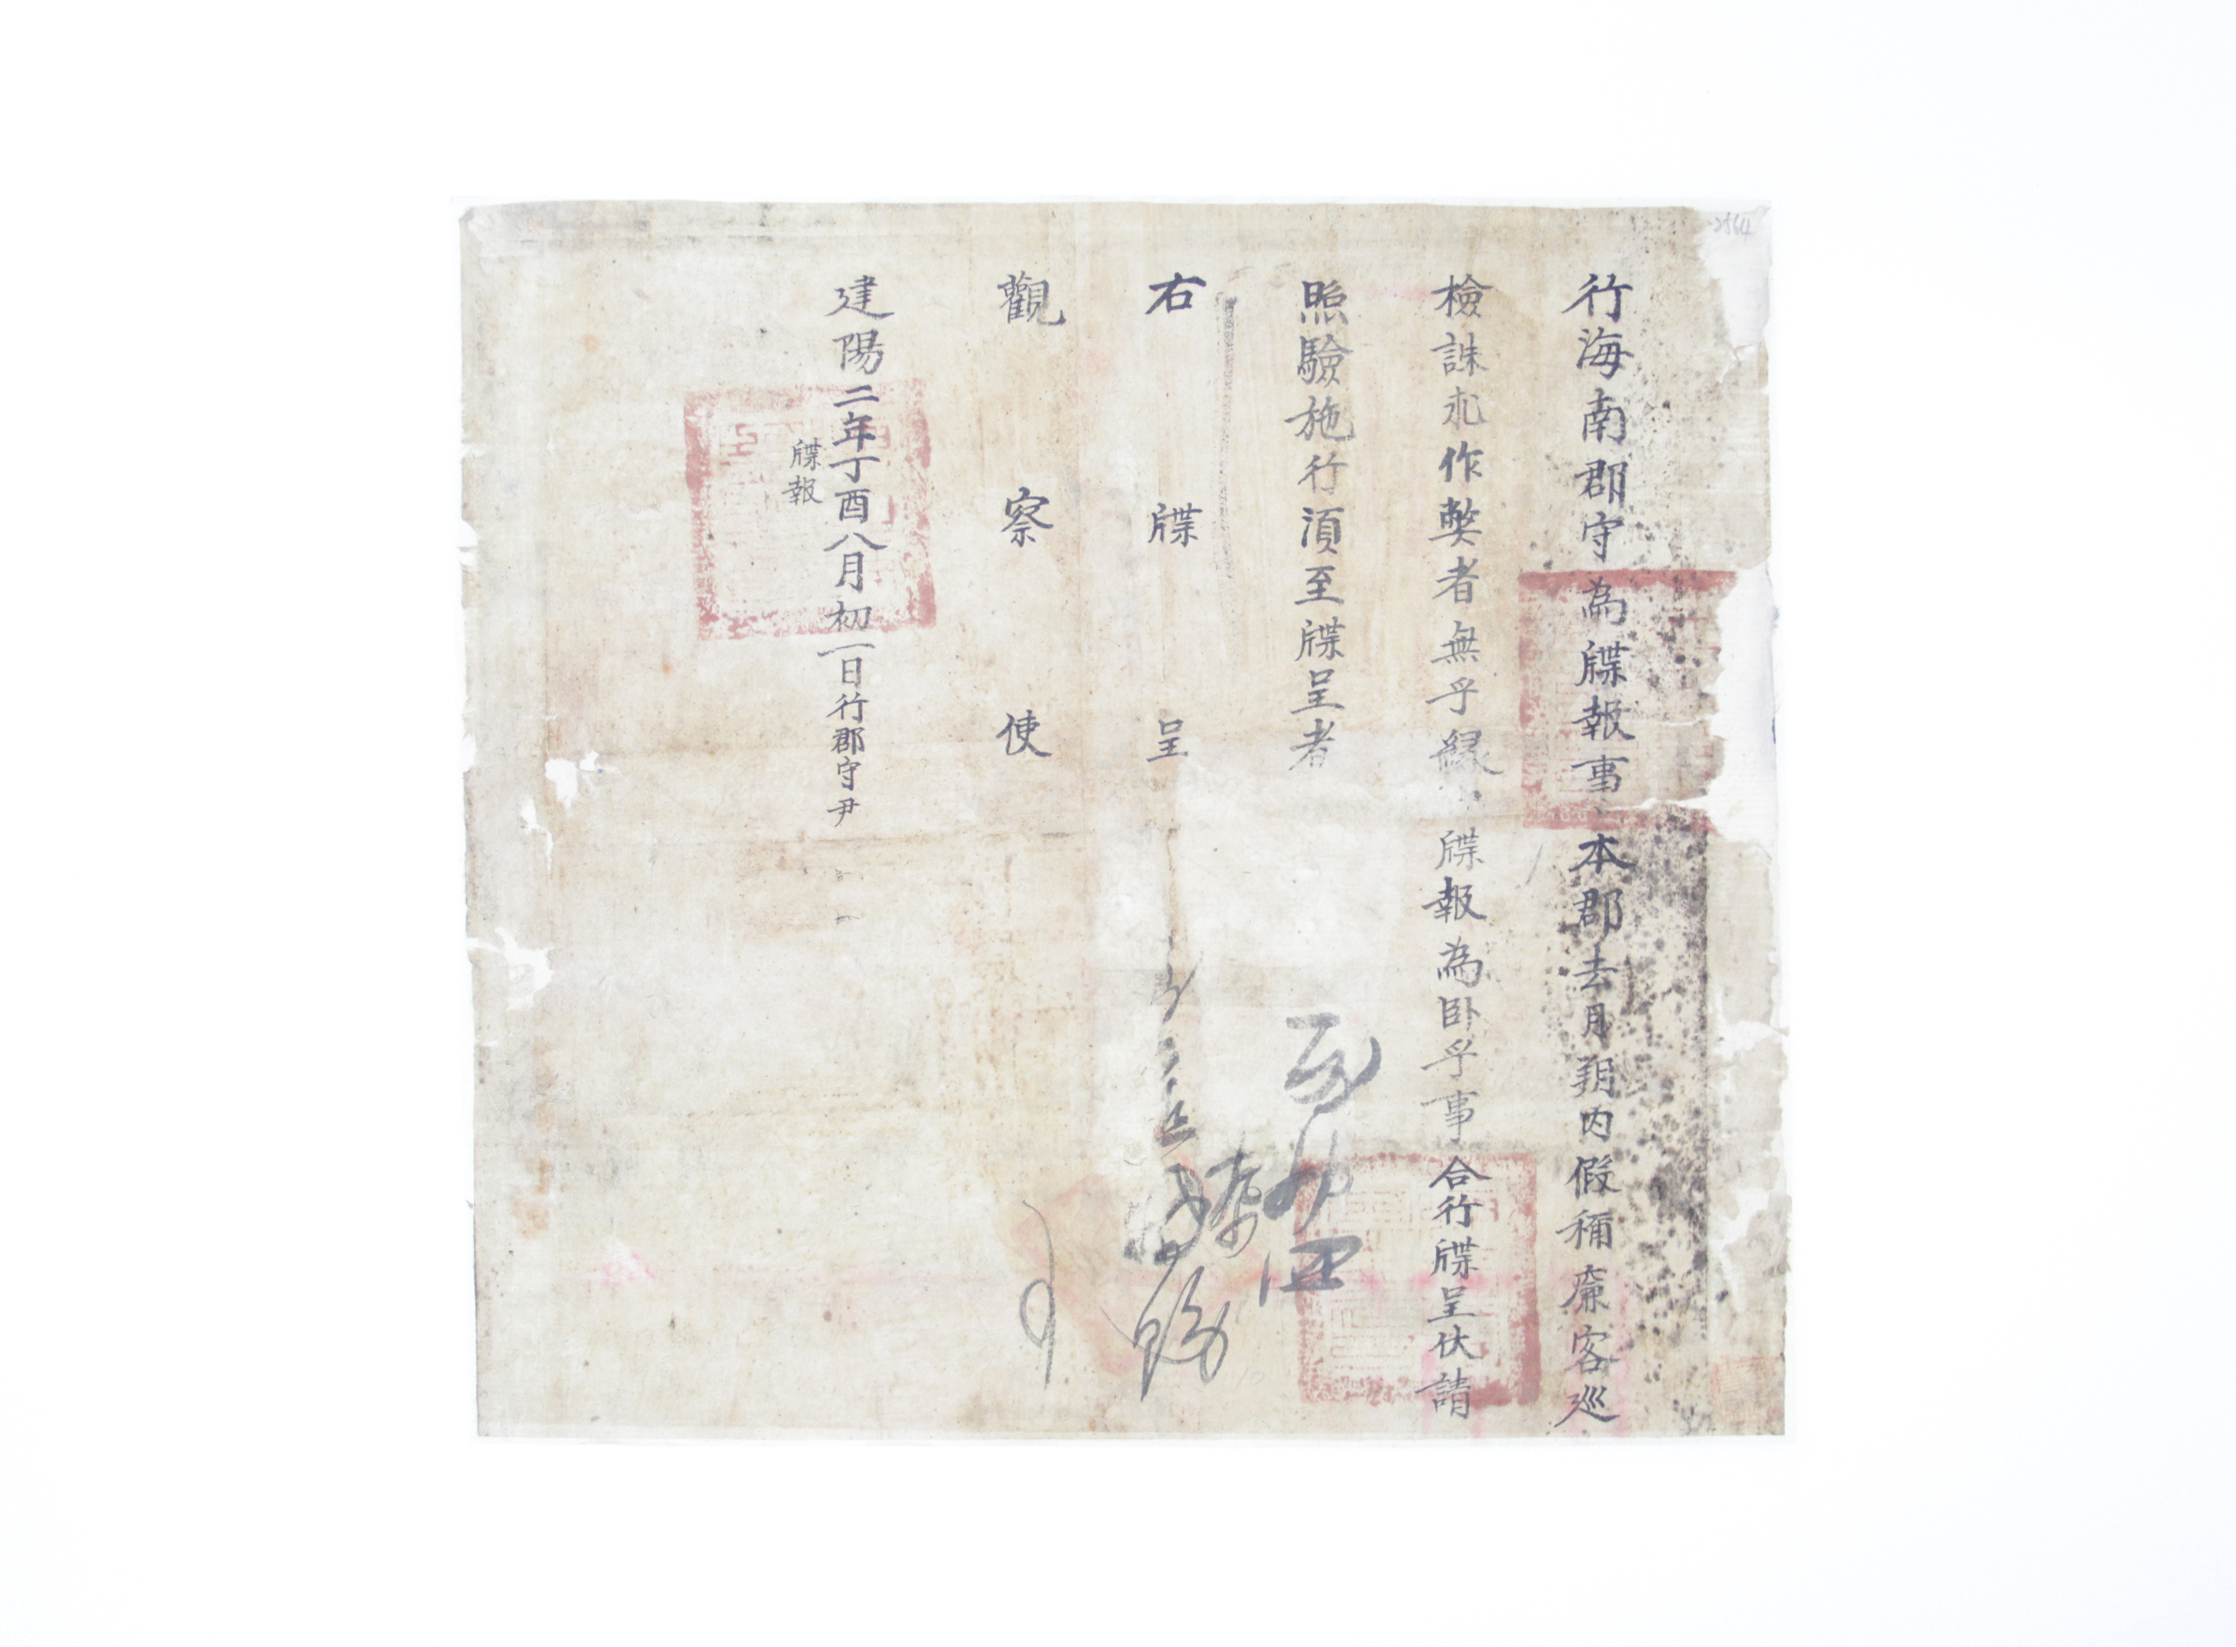 行海南郡守為牒報事本郡去月朔內假稱廉客巡
檢誅求作弊者無乎緣由牒報為臥乎事合行牒呈伏請
照驗施行須至牒呈者
右牒呈
觀察使
建陽二年丁酉八月初一日行郡守尹
牒報